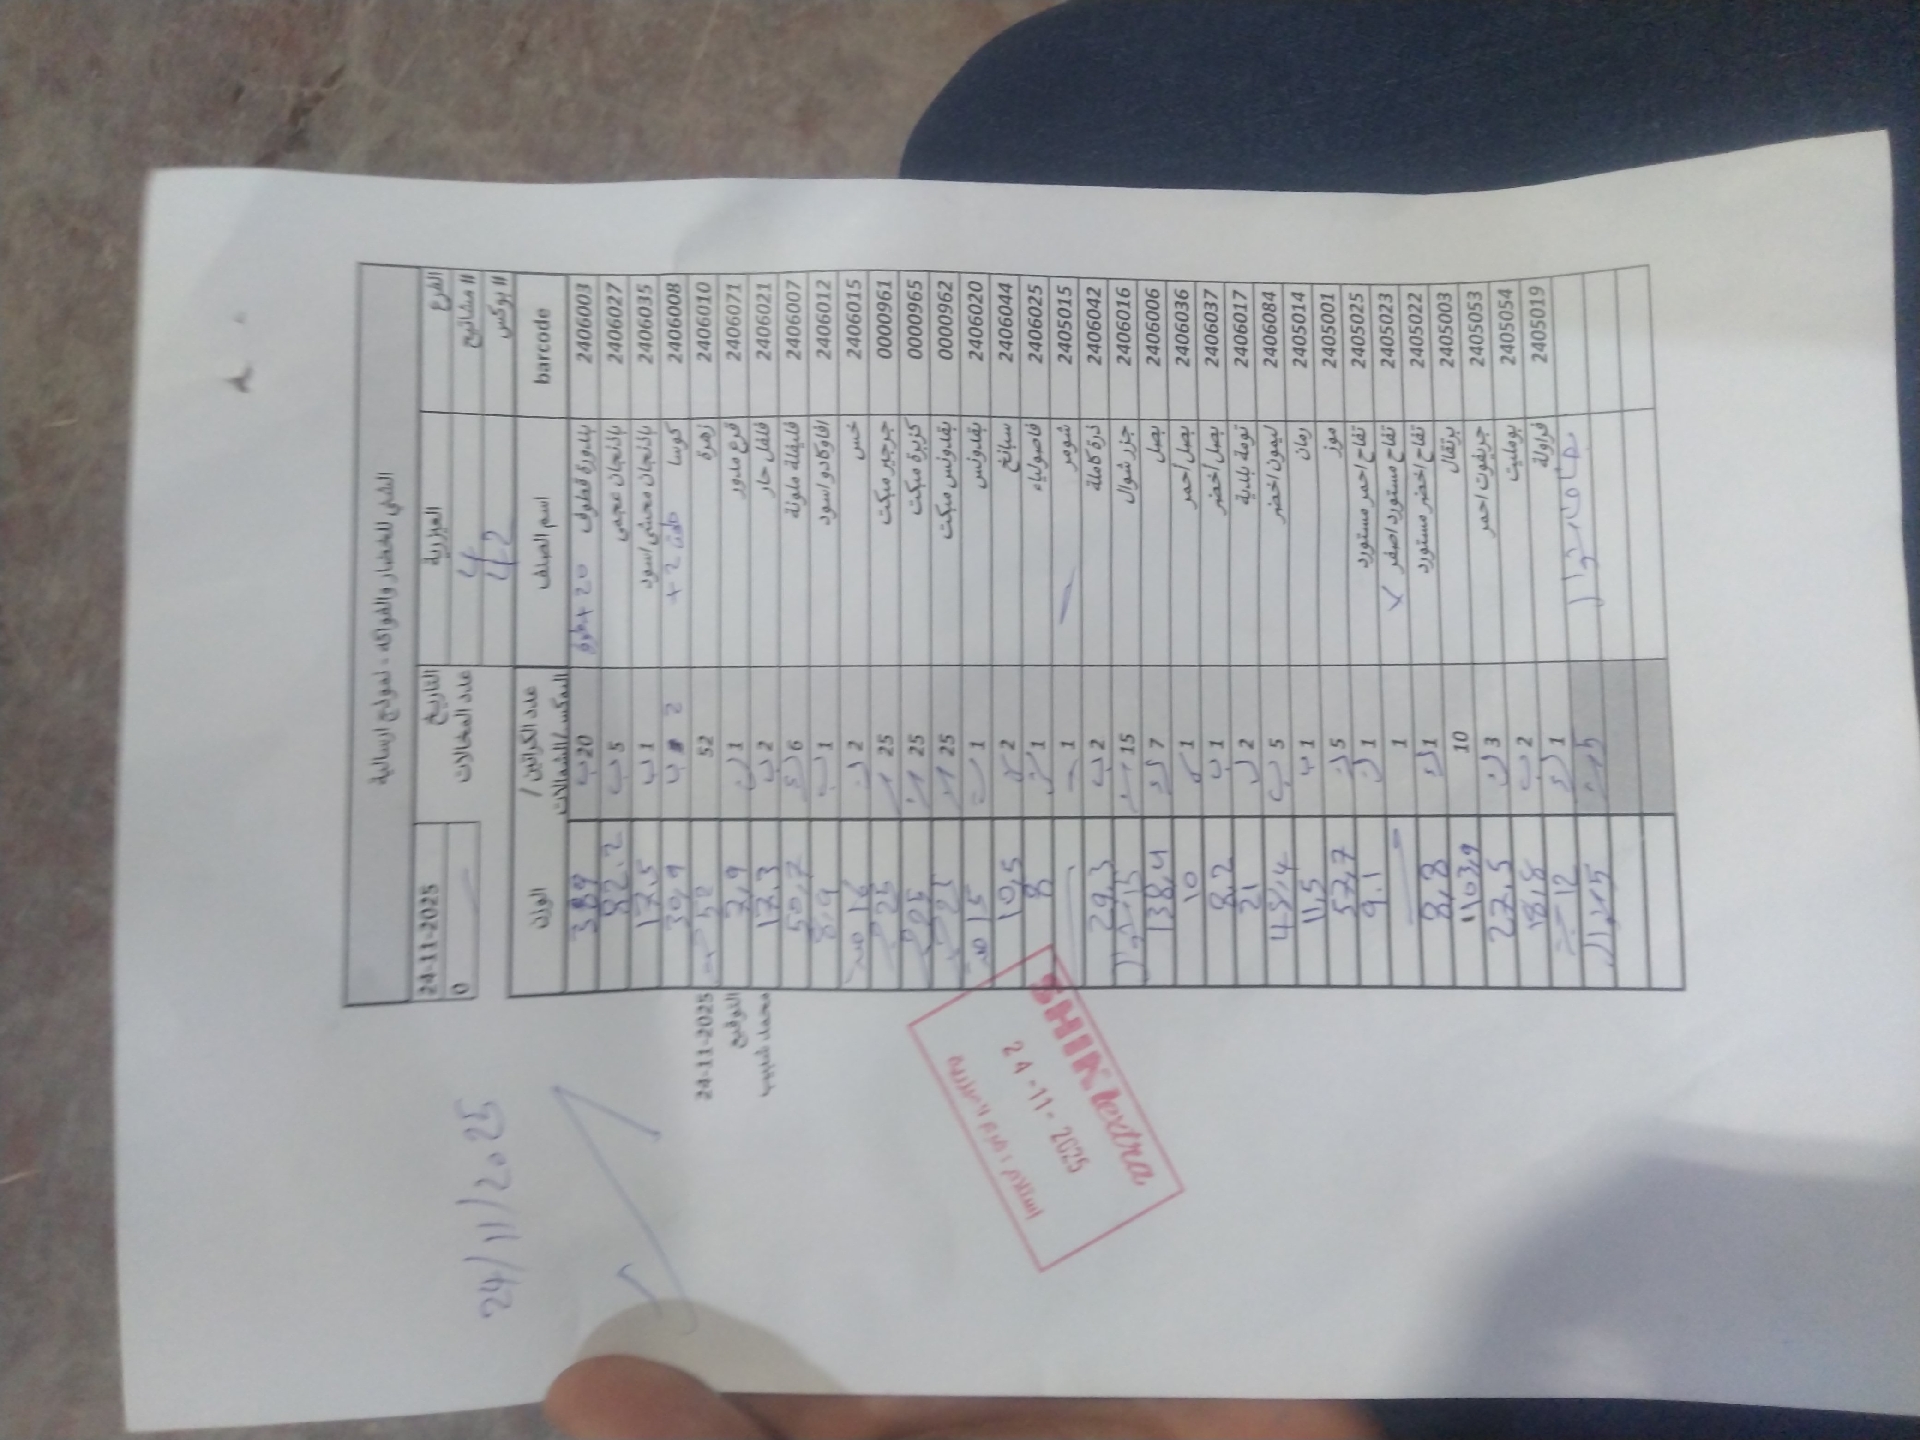 الشني للخضار والفواكه - نموذج ارسالية
الفرع العيزرية التاريخ 24-11-2025
# مشاتيح 4 عدد المخالات 0
# بوكس 42
barcode اسم الصنف عدد الكراتين / البوكس/الشمالات الوزن
2406003 بندورة قطوف 20 + 20 ب 389
2406027 باذنجان عجمي 5 ب 82.2
2406035 باذنجان محشي اسود 1 ب 17.5
2406008 كوسا + 2 2 ب 39,9
2406010 زهرة 52 52
2406071 قرع مدور 1 7,9
2406021 فلفل حار 2 ب 17.3
2406007 فليفلة ملونة 6 50,7
2406012 افاوكادو اسود 1 ب 8,9
2406015 خس 2 16
0000961 جرجير مبكت 25 25
0000965 كزبرة مبكت 25 25
0000962 بقدونس مبكت 25 25
2406020 بقدونس 1 15
2406044 سبانخ 2 10,5
2406025 فاصولياء 1 8
2405015 شومر 1
2406042 ذرة كاملة 2 ب 29,3
2406016 جزر شوال 15 15 شوال
2406006 بصل 7 138,4
2406036 بصل احمر 1 10
2406037 بصل اخضر 1 ب 8,2
2406017 ثومة بلدية 2 21
2406084 ليمون اخضر 5 ب 49,4
2405014 رمان 1 ب 11,5
2405001 موز 5 57,7
2405025 تفاح احمر مستورد 1 9.1
2405023 تفاح مستورد اصفر x 1
2405022 تفاح اخضر مستورد 1 8,8
2405003 برتقال 10 103,9
2405053 جريفوت احمر 3 27.5
2405054 بومليت 2 ب 18,8
2405019 فراولة 1 12
24-11-2025
التوقيع
محمد شبيب
24/11/2025
SHINI extra
24-11-2025